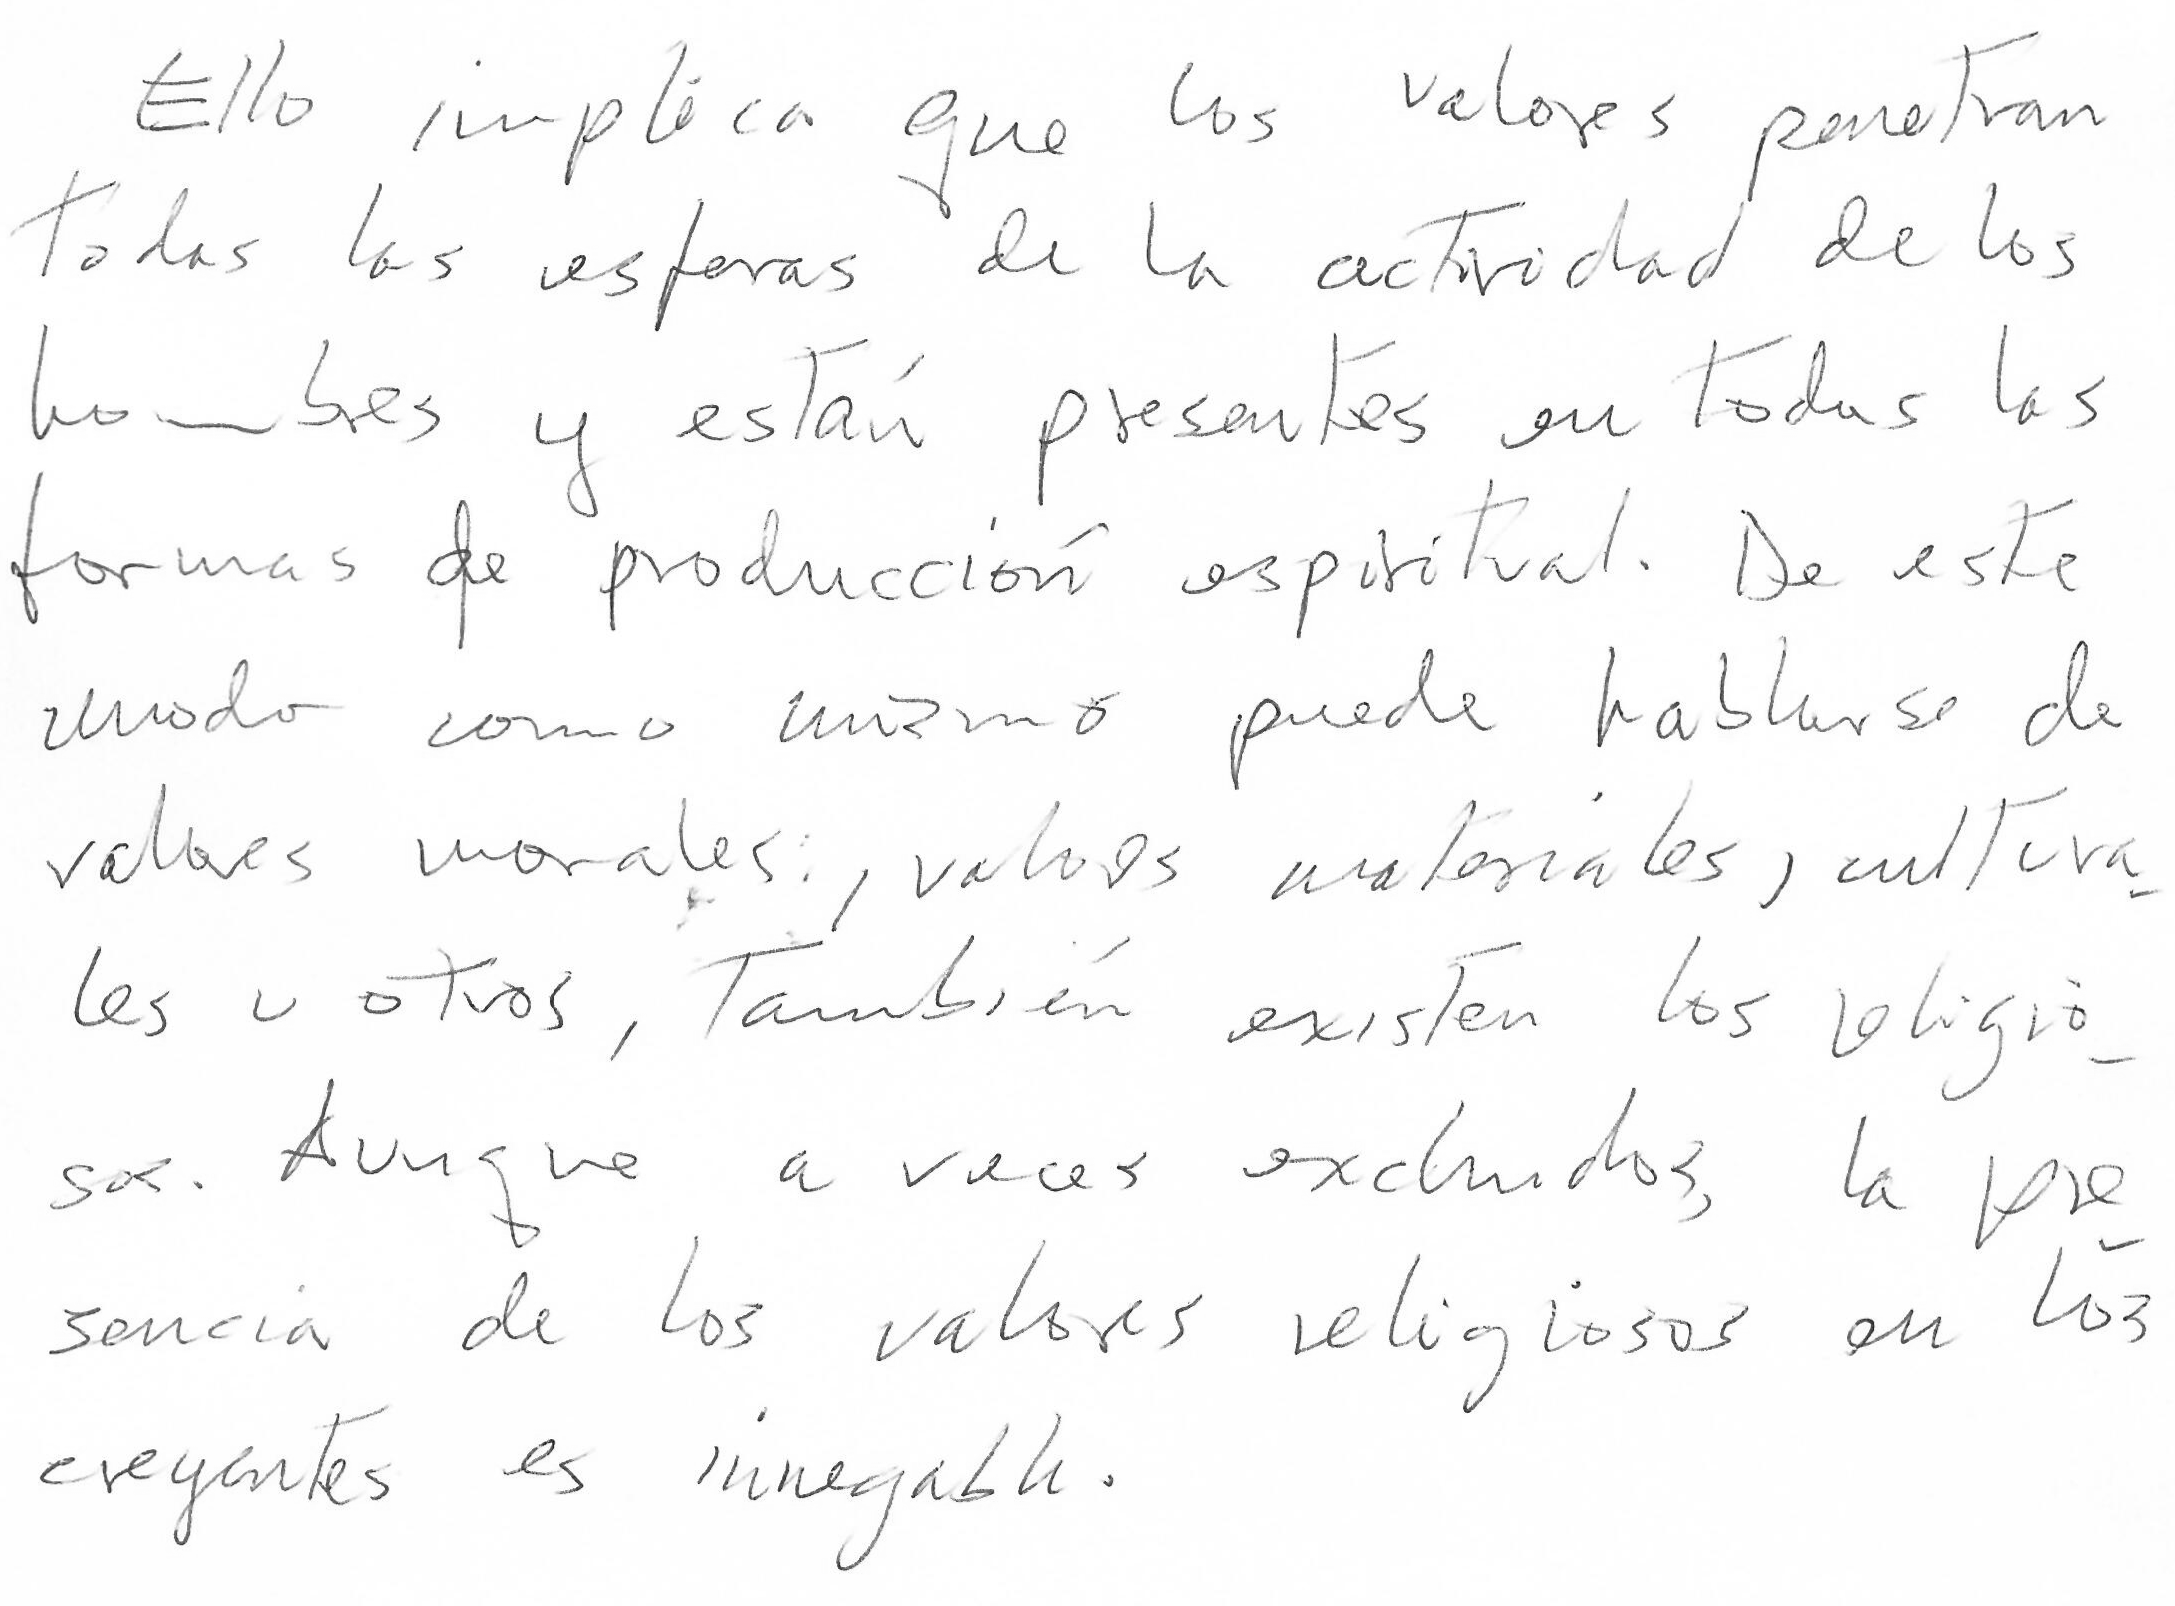 Ello implica que los valores penetran
todas las esferas de la actividad de los
hombres y están presentes en todas las
formas de producción espiritual. De este
modo como mismo puede hablarse de
valores morales, valores materiales, cultura-
les u otros, también existen los religio-
sos. Aunque a veces excluidos, la pre-
sencia de los valores religiosos en los
creyentes es innegable.